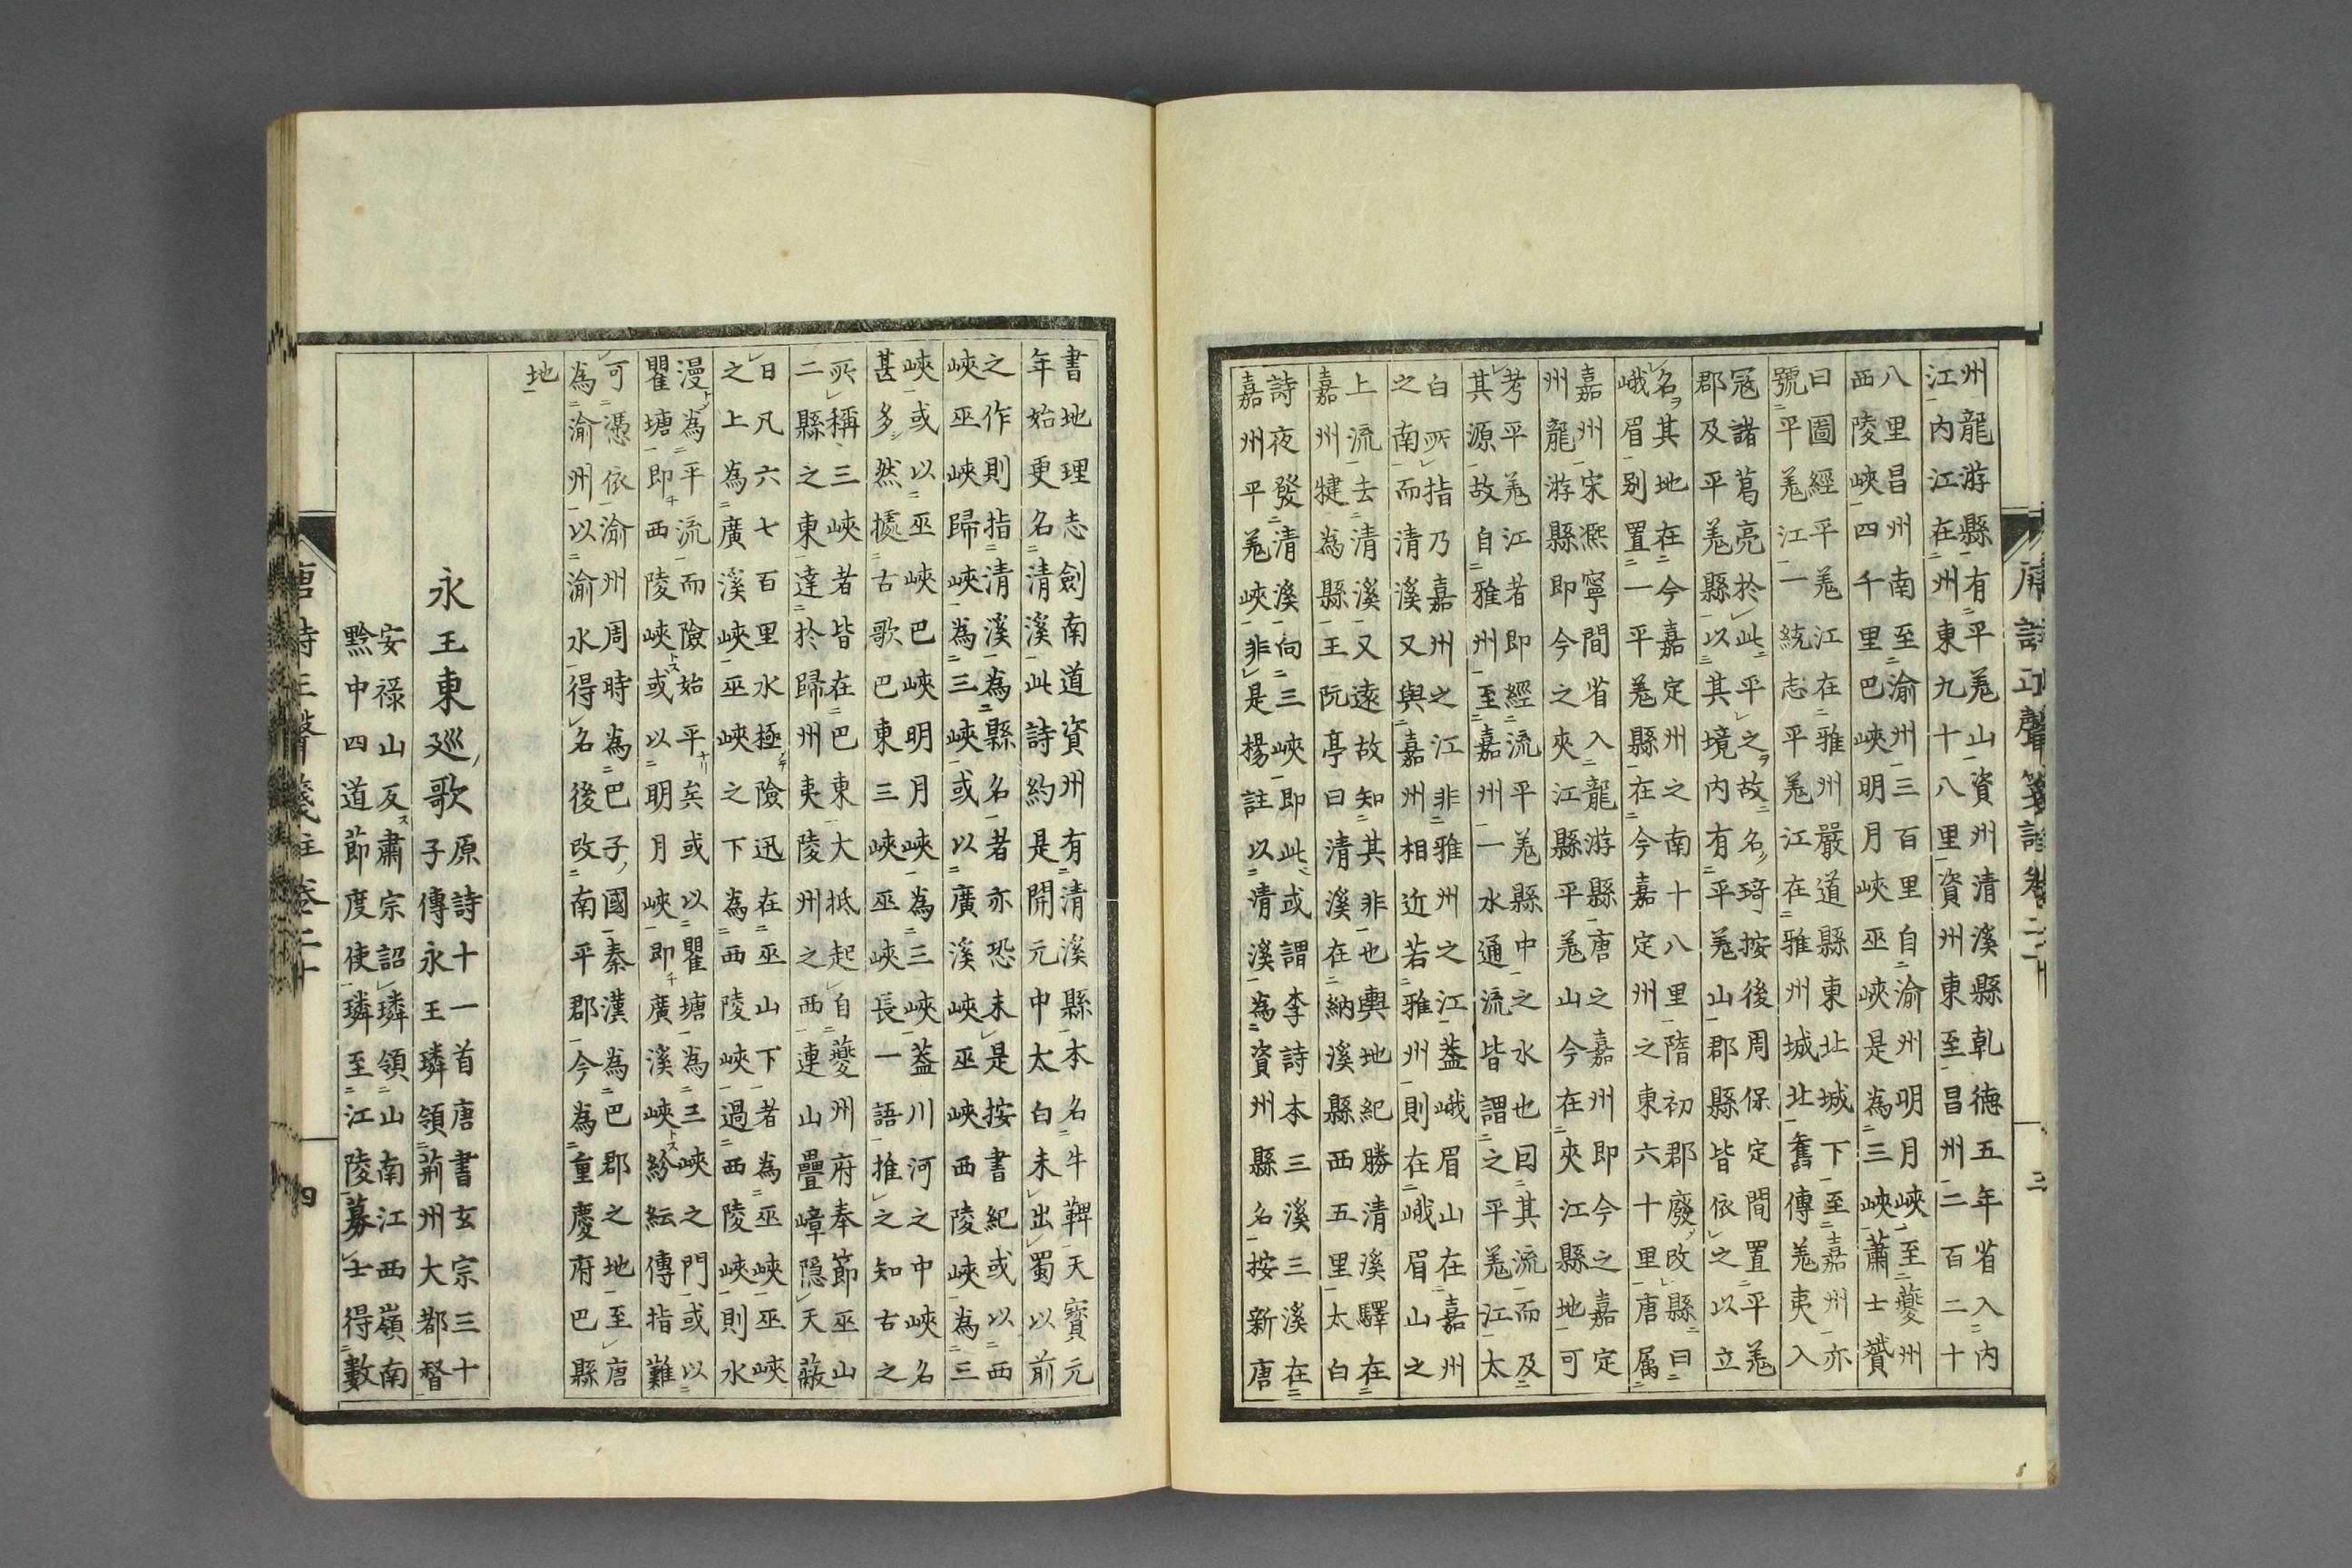 州龍游縣有平羗山資州清溪縣乾德五年省入內
江內江在州東九十八里資州東至昌州二百二十
八里昌州南至渝州三百里自渝州明月峽至夔州
西陵峽四千里巴峽明月峽巫峽是為三峽蕭士贇
曰圖經平羗江在雅州嚴道縣東北城下至嘉州亦
號平羗江一統志平羗江在雅州城北舊傳羗夷入
冦諸葛亮於此平之故名琦按後周保定間置平羗
郡及平羗縣以其境內有平羗山郡縣皆依之以立
名其地在今嘉定州之南十八里隋初郡廢改縣曰
峨眉别置一平羗縣在今嘉定州之東六十里唐属
嘉州宋熈寧間省入龍游縣唐之嘉州即今之嘉定
州龍游縣即今之夾江縣平羗山今在夾江縣地可
考平羗江者即經流平羗縣中之水也因其流而及
其源故自雅州至嘉州一水通流皆謂之平羗江太
白所指乃嘉州之江非雅州之江葢峨眉山在嘉州
之南而清溪又與嘉州相近若雅州則在峨眉山之
上流去清溪又遠故知其非也輿地紀勝清溪驛在
嘉州犍為縣王阮亭曰清溪在納溪縣西五里太白
詩夜發清溪向三峽即此或謂李詩本三溪三溪在
嘉州平羗峽非是楊註以清溪為資州縣名按新唐
唐詩正聲箋註卷二十
三
書地理志劍南道資州有清溪縣本名牛鞞天寶元
年始更名清溪此詩約是開元中太白未出蜀以前
之作則指清溪為縣名者亦恐未是按書紀或以西
峽巫峽歸峽為三峽或以廣溪峽巫峽西陵峽為三
峽或以巫峽巴峽明月峽為三峽葢川河之中峽名
甚多然據古歌巴東三峽巫峽長一語推之知古之
所稱三峽者皆在巴東大抵起自夔州府奉節巫山
二縣之東達於歸州夷陵州之西連山疊嶂隐天蔽
日凡六七百里水極險迅在巫山下者為巫峽巫峽
之上為廣溪峽巫峽之下為西陵峽過西陵峽則水
漫為平流而險始平矣或以瞿塘為三峽之門或以
瞿塘即西陵峽或以明月峽即廣溪峽紛紜傳指難
可憑依渝州周時為巴子國秦漢為巴郡之地至唐
為渝州以渝水得名後改南平郡今為重慶府巴縣
地
永王東巡歌原詩十一首唐書玄宗三十
子傳永王璘領荊州大都督
安禄山反肅宗詔璘領山南江西嶺南
黔中四道節度使璘至江陵募士得數
唐詩正聲箋註卷二十
四